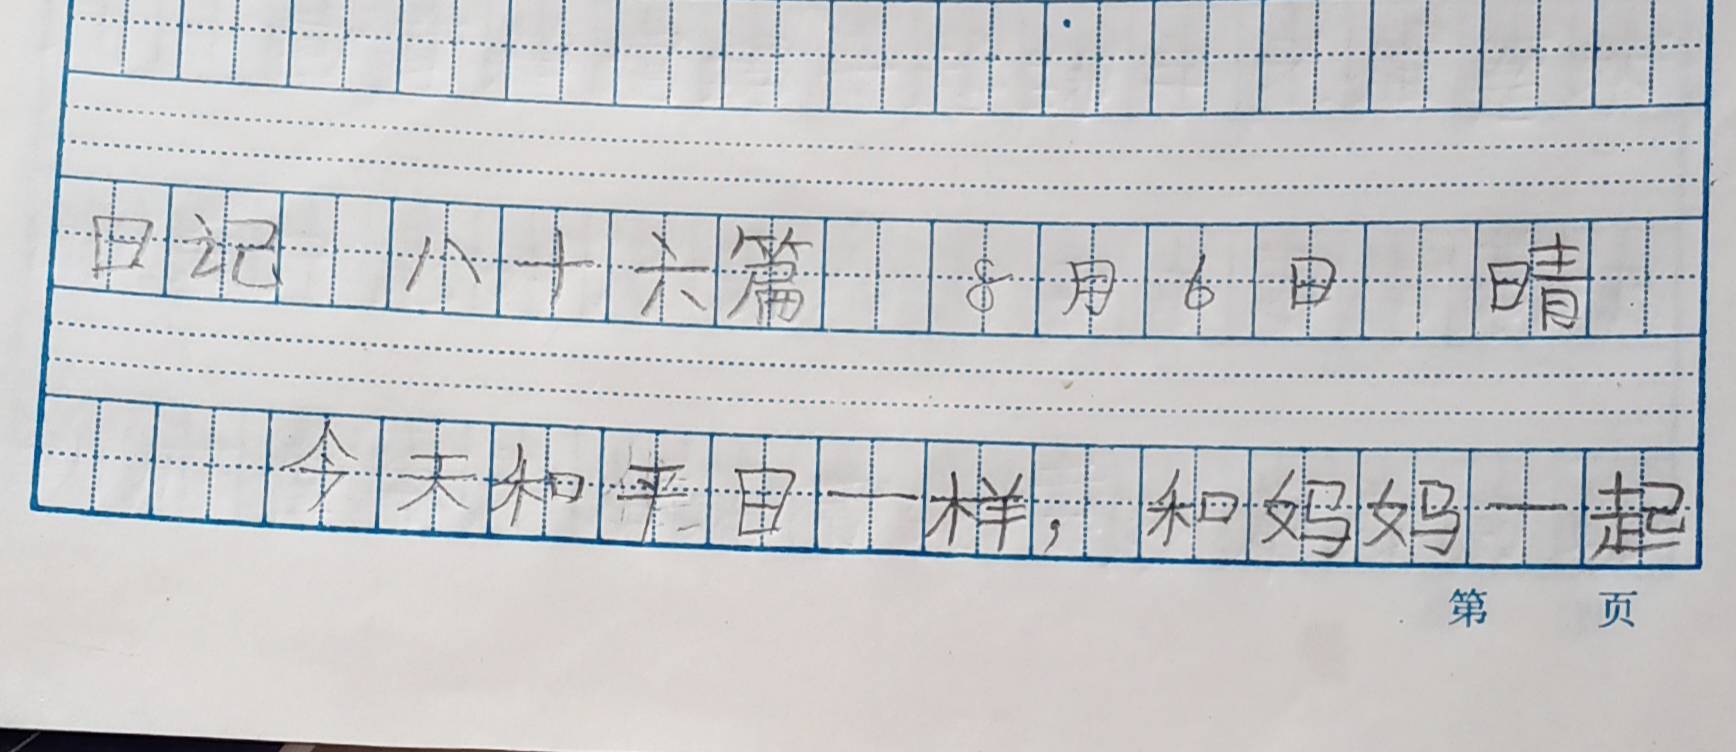 日记 八十六篇 8月6日 晴
今天和平日一样，和妈妈一起
第 页